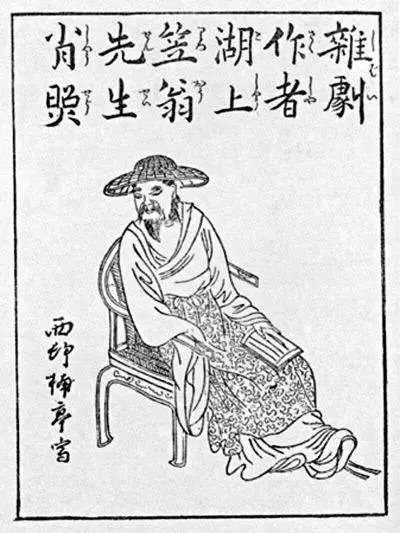 雜劇
作者
湖上
笠翁
先生
肖照
西邨楠亭寫